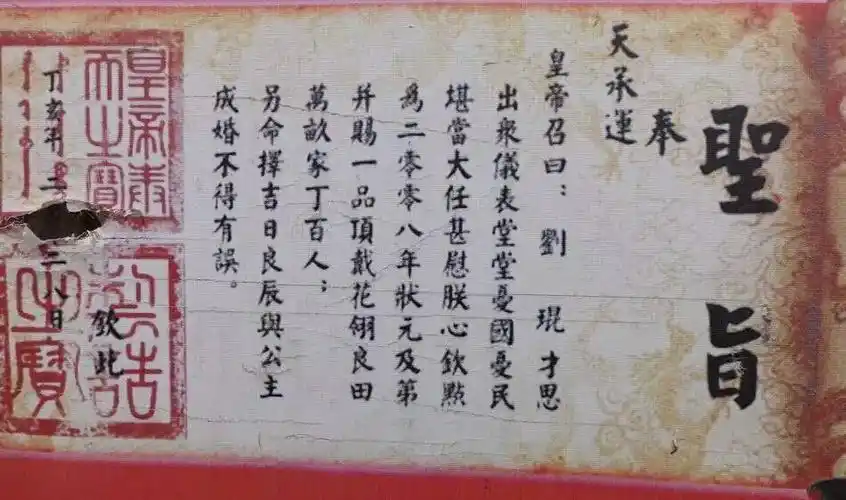 聖旨
奉
天承運
皇帝召曰：劉 琨才思
出衆儀表堂堂憂國憂民
堪當大任甚慰朕心欽點
爲二零零八年狀元及第
并賜一品頂戴花翎良田
萬畝家丁百人；
另命擇吉日良辰與公主
成婚不得有誤。
欽此
丁亥年二 二八日
皇帝奉
而之寶
制誥
之寶